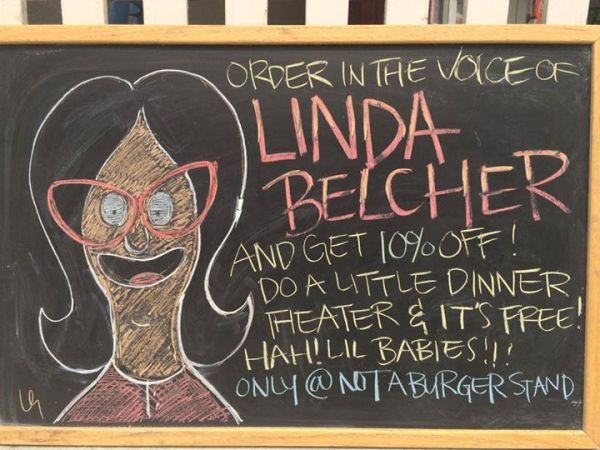 ORDER IN THE VOICE OF
LINDA
BELCHER
AND GET 10% OFF!
DO A LITTLE DINNER
THEATER & IT'S FREE!
HAH! LIL BABIES!!!
ONLY @ NOT A BURGER STAND